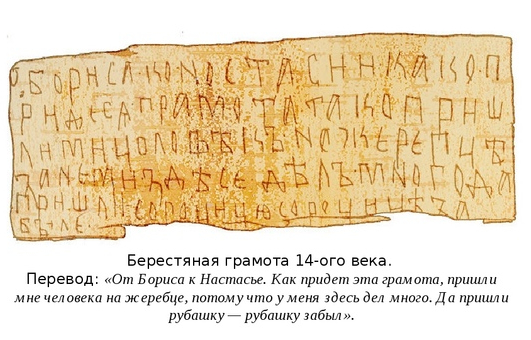 ѿ БОРИСА КО NОСТАСИИ КАКО П
РИДЕ СѦ ГРАМОТА ТАКО ПРИШ
ЛИ МИ ЦОЛОВѢКЪ NА ЖЕРЕПЦѢ
ЗАNЕ МИ ЗДѢСЕ ДѢЛЪ МNОГО ДА
ПРИШЛИ СОРОЦИЦЮ СОРОЦИЦѢ ЗА
БЪІЛЕ
Берестяная грамота 14-ого века.
Перевод: «От Бориса к Настасье. Как придет эта грамота, пришли
мне человека на жеребце, потому что у меня здесь дел много. Да пришли
рубашку — рубашку забыл».